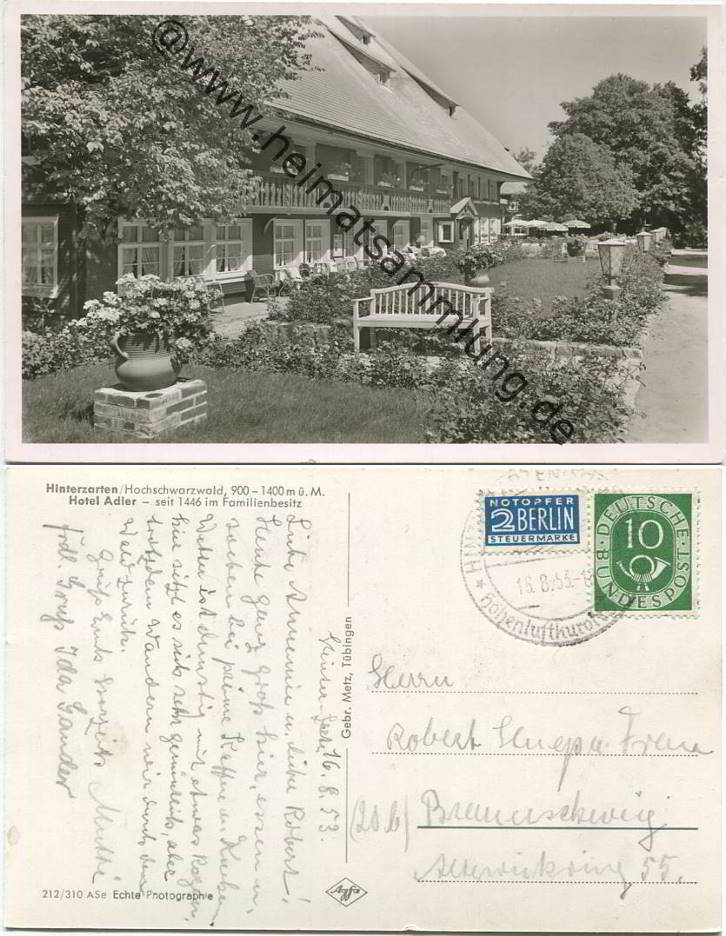 @www.heimatsammlung.de
Hinterzarten/Hochschwarzwald, 900 – 1400 m ü. M.
Hotel Adler – seit 1446 im Familienbesitz
NOTOPFER
2 BERLIN
STEUERMARKE
DEUTSCHE BUNDESPOST
10
16.8.53.-1
Höhenluftkurort
16.8.53.
Liebe Annemie u. lieber Robert!
Heute ganz groß hier, essen u.
Kaffee u. Kuchen.
Wetter ist dunstig mit etwas Regen,
hier sitzt es sich sehr gemütlich, aber
trotzdem wandern wir durch den
Wald zurück.
Gruß Mutti
frdl. Gruß Ida Sander
Gebr. Metz, Tübingen
Herrn
Robert u. Frau
(20b) Braunschweig
Altewiekring 55.
212/310 ASe Echte Photographie
Agfa